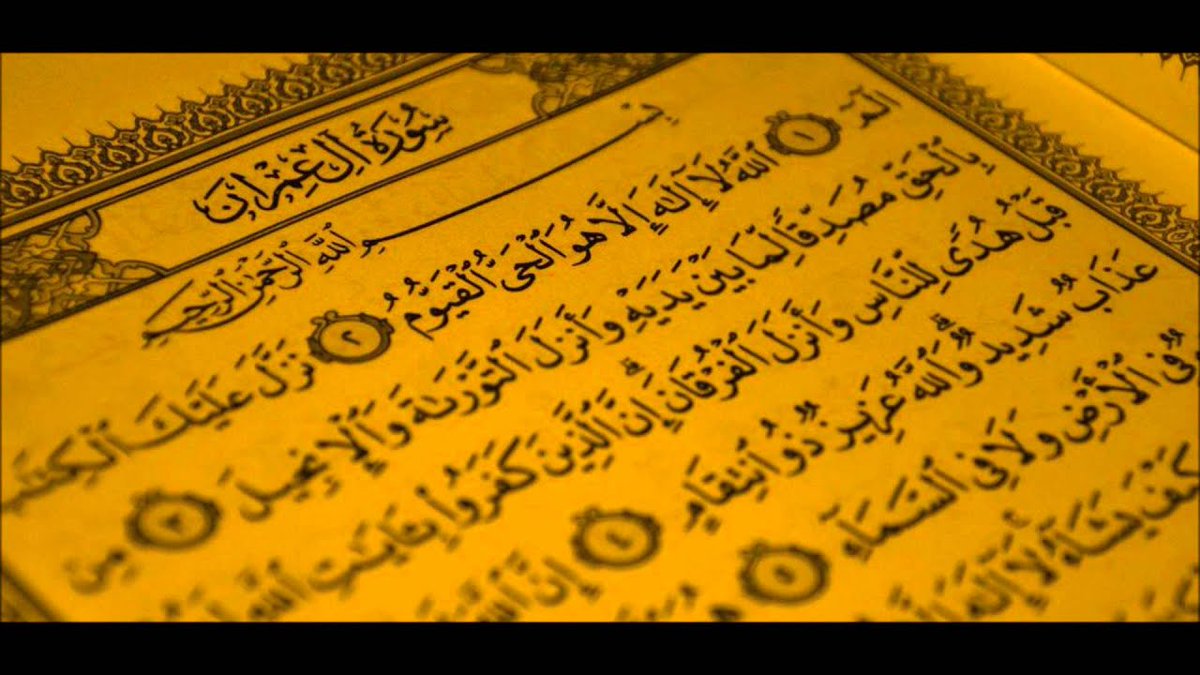 سُورَةُ آلِ عِمْرَانَ
بِسْمِ ٱللَّهِ ٱلرَّحْمَٰنِ ٱلرَّحِيمِ
الٓمٓ ١ ٱللَّهُ لَآ إِلَٰهَ إِلَّا هُوَ ٱلْحَىُّ ٱلْقَيُّومُ ٢ نَزَّلَ عَلَيْكَ ٱلْكِتَٰبَ
بِٱلْحَقِّ مُصَدِّقًا لِّمَا بَيْنَ يَدَيْهِ وَأَنزَلَ ٱلتَّوْرَىٰةَ وَٱلْإِنجِيلَ ٣ مِن
قَبْلُ هُدًى لِّلنَّاسِ وَأَنزَلَ ٱلْفُرْقَانَ ۗ إِنَّ ٱلَّذِينَ كَفَرُوا۟ بِـَٔايَٰتِ ٱللَّهِ
عَذَابٌ شَدِيدٌ ۗ وَٱللَّهُ عَزِيزٌ ذُو ٱنتِقَامٍ ٤ إِنَّ ٱللَّهَ
فِى ٱلْأَرْضِ وَلَا فِى ٱلسَّمَآءِ ٥
كَيْفَ يَشَآءُ ۚ لَآ إِلَٰهَ إِلَّا